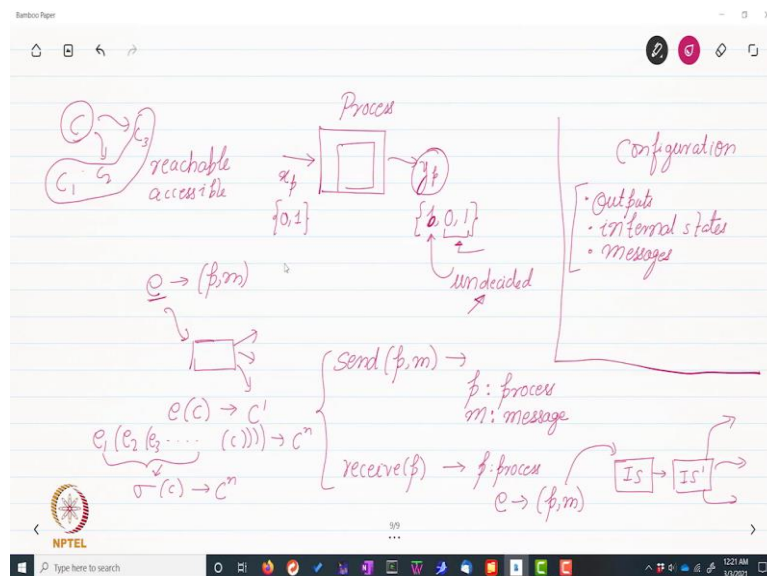 Bamboo Paper
Process
C
C₃
C₁ C₂
reachable
accessible
xₚ
{0,1}
yₚ
{b,0,1}
undecided
Configuration
• Outputs
• internal states
• messages
e → (p,m)
e(C) → C'
e₁(e₂(e₃ ..... (c)))) → Cⁿ
σ(c) → Cⁿ
send(p,m) →
p: process
m: message
receive(p) → p: process
e → (p,m)
IS → IS'
NPTEL
9/9
Type here to search
12:21 AM
3/3/2021